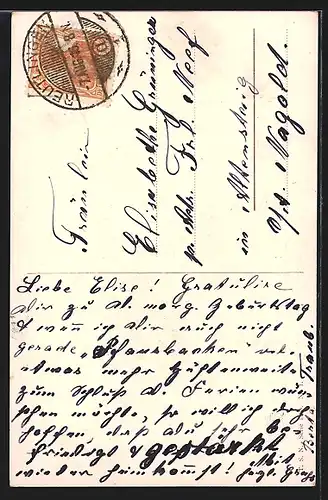 REUTLINGEN
Fräulein
Elisabethe Grüninger
p. Adr. Frl. Neef
in Altensteig
O/A Nagold.
Liebe Elise! Gratuliere
dir zu d. morg. Geburtstag
& wenn ich dir auch nicht
gerade „Pfausbacken"
etwas mehr
zum Schluß d. Ferien wün-
schen möchte, so will ich doch
hoffen daß du sehr be-
friedigt & gestärkt
wieder heim kommst! Mit
herzl. Gruß
Traub.